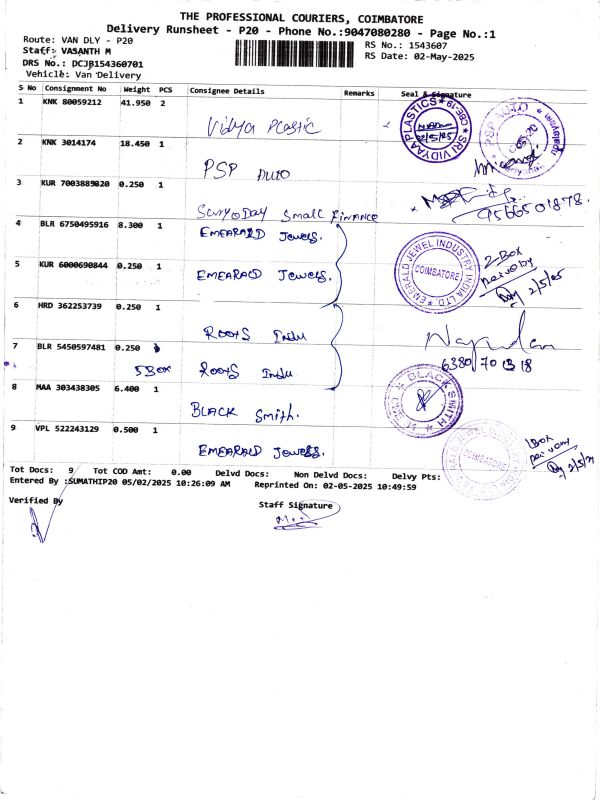 THE PROFESSIONAL COURIERS, COIMBATORE
Delivery Runsheet - P20 - Phone No.:9047080280 - Page No.:1
Route: VAN DLY - P20
RS No.: 1543607
Staff: VASANTH M
RS Date: 02-May-2025
DRS No.: DCJB154360701
Vehicle: Van Delivery
S No Consignment No Weight PCS Consignee Details Remarks Seal & Signature
1 KNK 80059212 41.950 2
Vidya Plastic
SRI VIDYAA PLASTICS CBE-19
2/5/25
PSP AUTO
2 KNK 3014174 18.450 1
PSP Auto
3 KUR 7003889820 0.250 1
Suryoday Small Finance
9566501878.
4 BLR 6750495916 8.300 1
EMEARALD Jewels.
EMERALD JEWEL INDUSTRY INDIA LTD.
COIMBATORE
2-Box
2/5/25
5 KUR 6000690844 0.250 1
EMEARALD Jewels.
6 HRD 362253739 0.250 1
ROOTS Indu
7 BLR 5450597481 0.250
5 BOX ROOTS Indu
6380 70 13 18
8 MAA 303438305 6.400 1
BLACK Smith.
BLACK SMITH
9 VPL 522243129 0.500 1
EMEARALD Jewels.
COIMBATORE
1 Box
2/5/25
Tot Docs: 9 Tot COD Amt: 0.00 Delvd Docs: Non Delvd Docs: Delvy Pts:
Entered By :SUMATHIP20 05/02/2025 10:26:09 AM Reprinted On: 02-05-2025 10:49:59
Verified By
Staff Signature